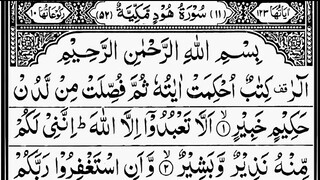 اٰیَاتُهَا ۱۲۳ (۱۱) سُوْرَةُ هُوْدٍ مَّكِّيَّةٌ (۵۲) رُكُوْعَاتُهَا ۱۰
بِسْمِ اللّٰهِ الرَّحْمٰنِ الرَّحِيْمِ
الٓرٰ قف كِتٰبٌ اُحْكِمَتْ اٰيٰتُهٗ ثُمَّ فُصِّلَتْ مِنْ لَّدُنْ
حَكِيْمٍ خَبِيْرٍ ۱ اَلَّا تَعْبُدُوْۤا اِلَّا اللّٰهَ ؕ اِنَّنِيْ لَكُمْ
مِّنْهُ نَذِيْرٌ وَّبَشِيْرٌ ۲ وَّاَنِ اسْتَغْفِرُوْا رَبَّكُمْ